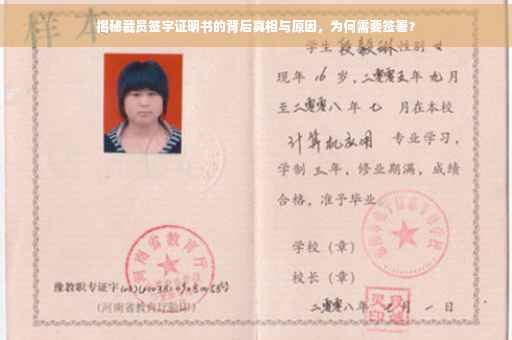 揭秘裁员签字证明书的背后真相与原因，为何需要签署？
样本
学生 段毅琳 性别 女
现年 16 岁，二零零五年 九月
至二零零八年 七 月在本校
计算机应用 专业学习，
学制 三年，修业期满，成绩
合格，准予毕业
学校（章）
校长（章）
河南省教育厅
豫教职专证字
(河南省教育厅验印)
二零零八年 七 月 一 日